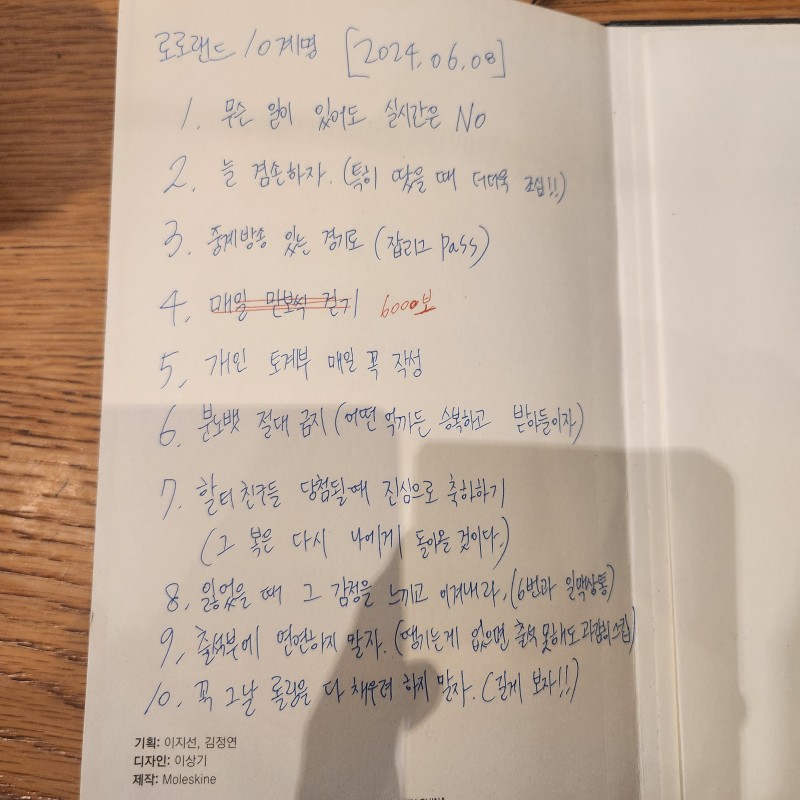 로로랜드 10계명 [2024.06.08]
1. 무슨 일이 있어도 실시간은 No
2. 늘 겸손하자. (특히 땄을 때 더더욱 조심!!)
3. 중계방송 있는 경기로 (잡리그 pass)
4. 매일 만보씩 걷기 6000보
5. 개인 토계부 매일 꼭 작성
6. 분노벳 절대 금지 (어떤 억까든 승복하고 받아들이자)
7. 할터 친구들 당첨될때 진심으로 축하하기
(그 복은 다시 나에게 돌아올 것이다.)
8. 잃었을 때 그 감정을 느끼고 이겨내라. (6번과 일맥상통)
9. 출석부에 연연하지 말자. (땡기는게 없으면 출석 못해도 과감히 스킵)
10. 꼭 그날 롤링을 다 채우려 하지 말자. (길게 보자!!)
기획: 이지선, 김정연
디자인: 이상기
제작: Moleskine